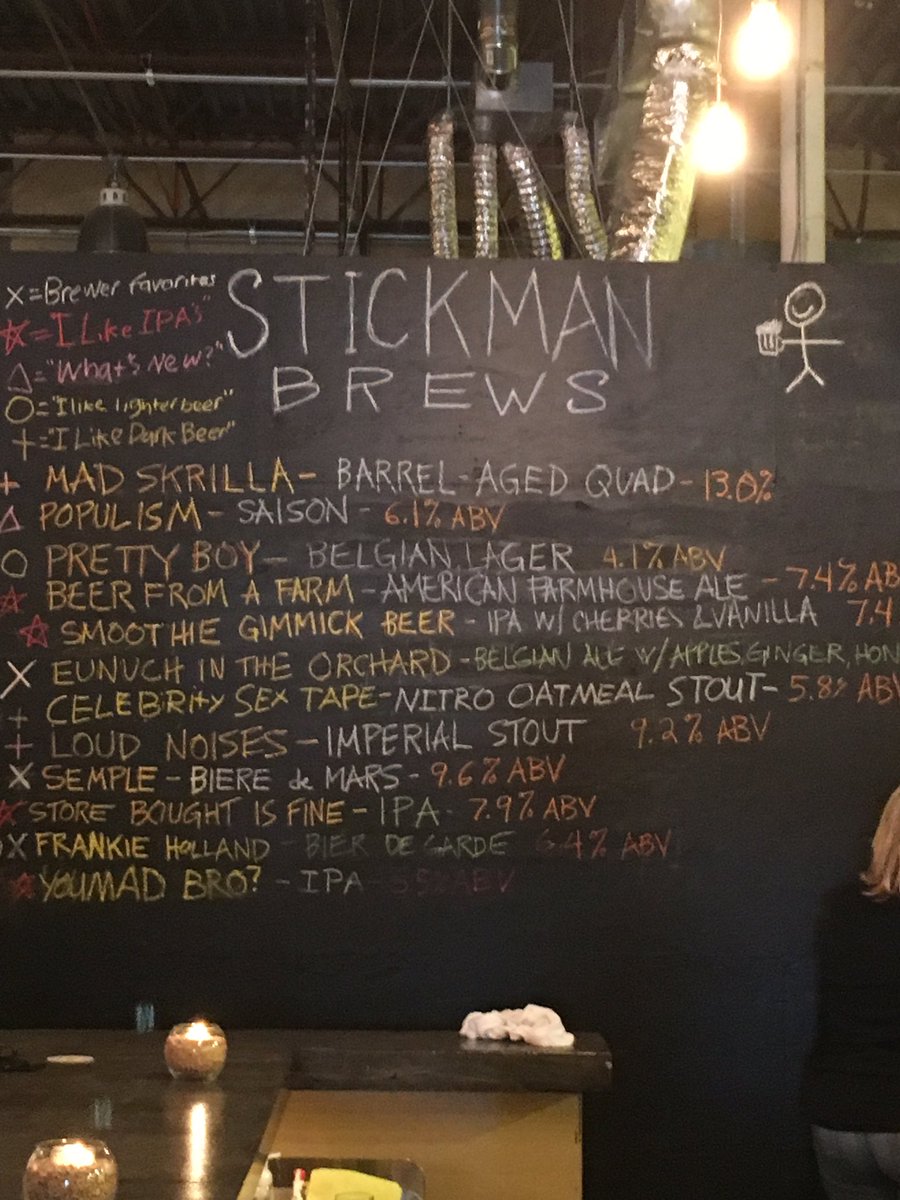 X = Brewer Favorites
☆ = "I Like IPA's"
△ = "What's New?"
O = "I like lighter beer"
+ = "I Like Dark Beer"
STICKMAN
BREWS
+ MAD SKRILLA - BARREL-AGED QUAD - 13.0%
△ POPULISM - SAISON - 6.1% ABV
O PRETTY BOY - BELGIAN LAGER 4.1% ABV
☆ BEER FROM A FARM - AMERICAN FARMHOUSE ALE - 7.4% AB
☆ SMOOTHIE GIMMICK BEER - IPA W/ CHERRIES & VANILLA 7.4
X EUNUCH IN THE ORCHARD - BELGIAN ALE W/ APPLES, GINGER, HON
+ CELEBRITY SEX TAPE - NITRO OATMEAL STOUT - 5.8% ABV
+ LOUD NOISES - IMPERIAL STOUT 9.2% ABV
X SEMPLE - BIERE de MARS - 9.6% ABV
☆ STORE BOUGHT IS FINE - IPA - 7.9% ABV
X FRANKIE HOLLAND - BIER DE GARDE 6.4% ABV
☆ YOU MAD BRO? - IPA - ABV